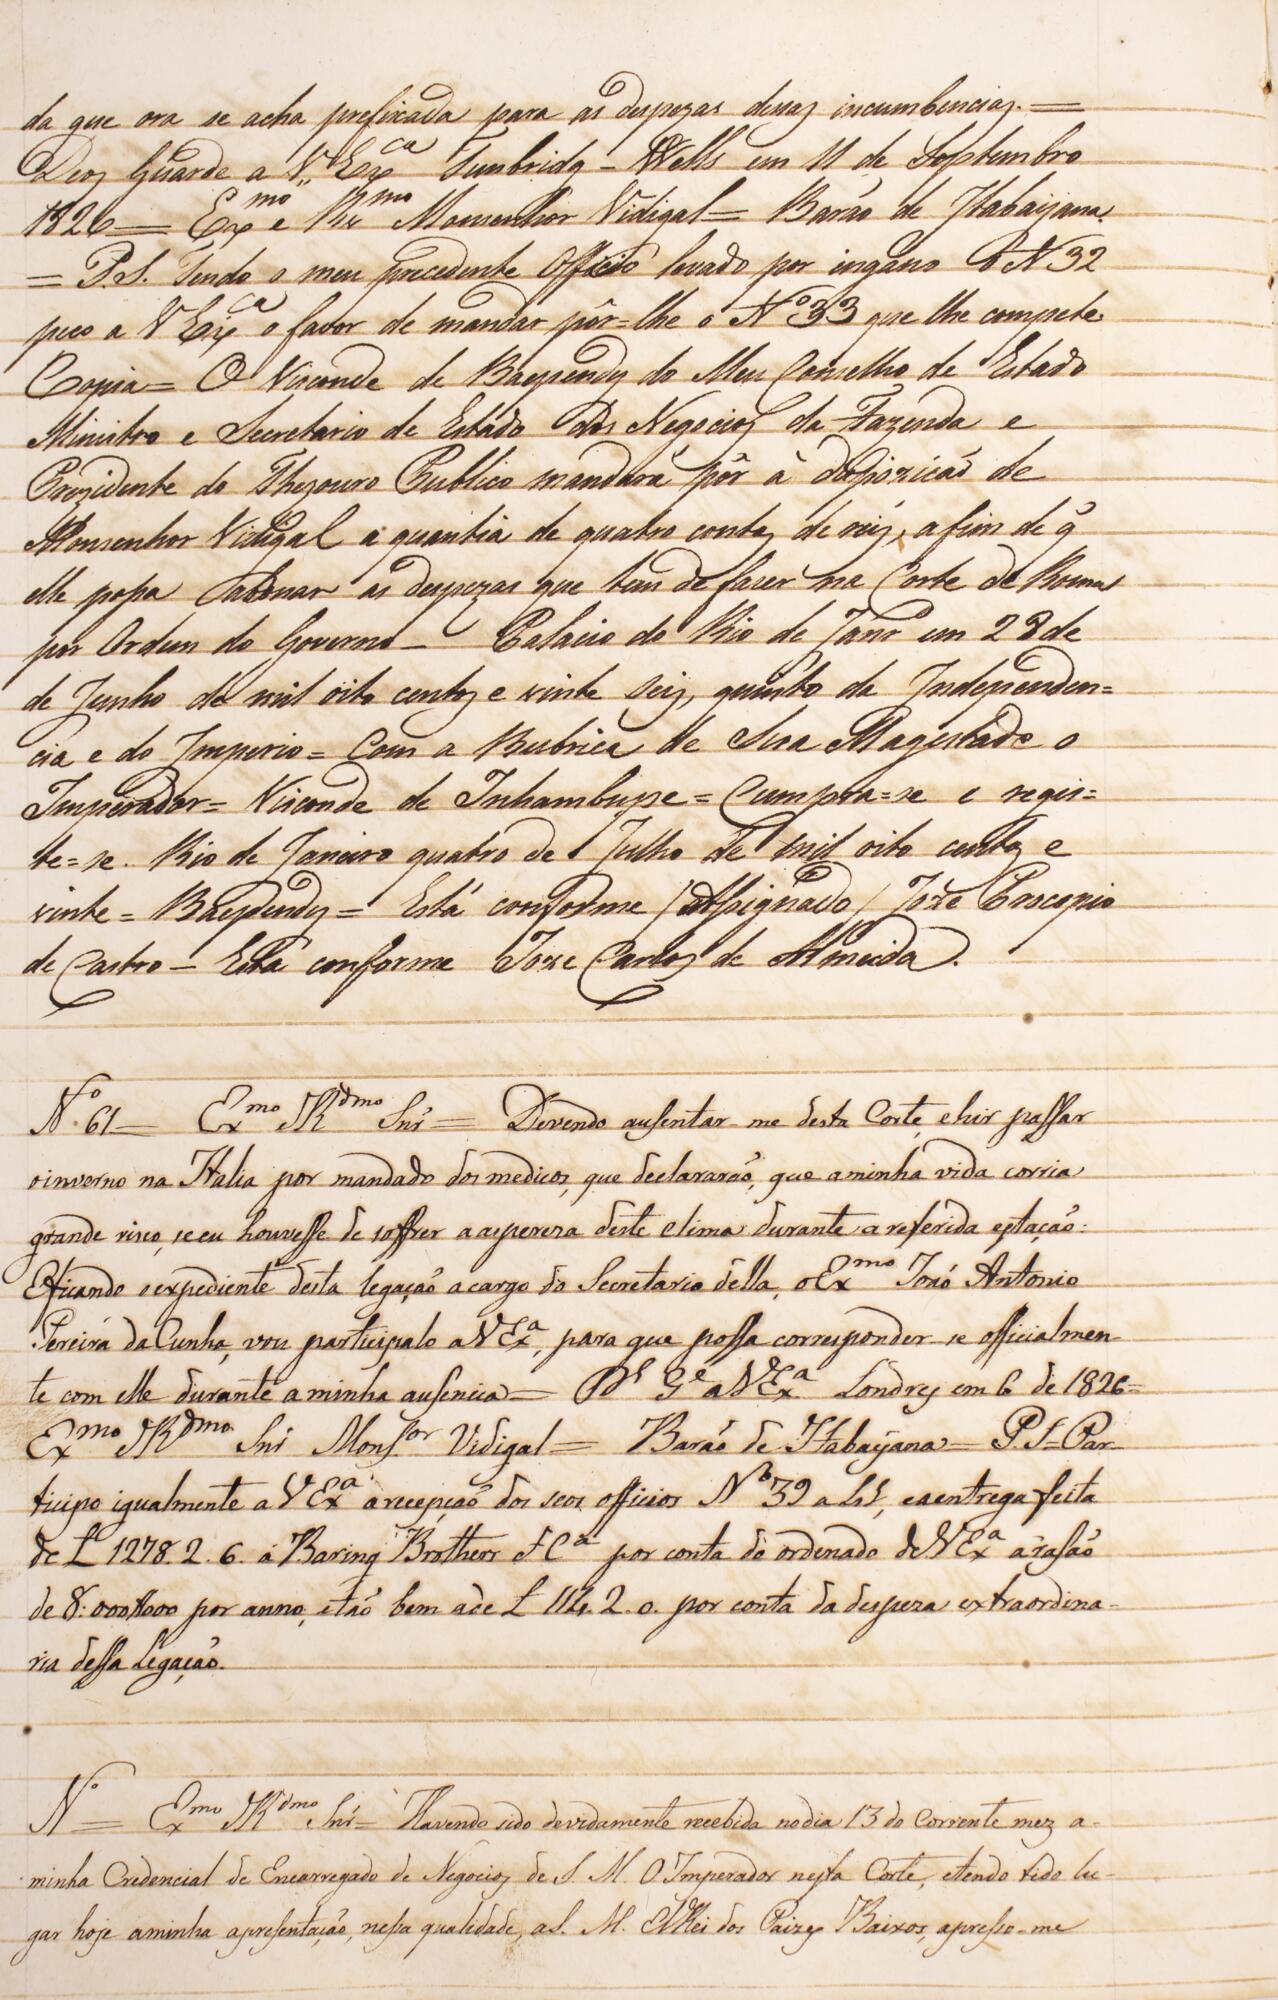 da que ora se acha prefixada para as despezas dessas incumbencias. =
Deos Guarde a V. Exca Tunbridg - Wells em 11 de Septembro
1826 = Exmo e Rmo Monsenhor Vidigal = Barão de Itabaijana.
= P.S. Tendo o meu precedente Officio levado por engano o N 32
peço a V Exca o favor de mandar pôr-lhe o No 33 que lhe compete.
Copia = O Visconde de Baependy do Meu Conselho de Estado
Ministro e Secretario de Estado dos Negocios da Fazenda e
Prezidente do Thezouro Publico mandará pôr à dispozicaõ de
Monsenhor Vidigal a quantia de quatro contos de reis, a fim de q̃
elle possa abonar as despezas que tem de fazer na Corte de Roma
por Ordem do Governo - Palacio do Rio de Janro em 28 de
de Junho de mil oito centos e vinte seis, quinto da Independen=
cia e do Imperio = Com a Rubrica de Sua Magestade o
Imperador = Visconde de Inhambupe = Cumpra=se e regis=
te=se. Rio de Janeiro quatro de Julho de mil oito centos e
vinte = Baependy = Está conforme / Assignado / Joze Procopio
de Castro - Está conforme Joze Carlos de Almeida.
No. 61 = Exmo Rdmo Snr = Devendo ausentar-me desta Corte, e hir passar
o inverno na Italia por mandado dos medicos, que declararaõ, que a minha vida corria
grande risco, se eu houvesse de soffrer a aspereza deste clima durante a referida estaçaõ:
E ficando o expediente desta legaçaõ a cargo do Secretario della, o Exmo José Antonio
Pereira da Cunha, vou participalo a V Exa, para que possa corresponder-se officialmen-
te com elle durante a minha ausencia = Ds Ge a V Exa Londres em 6 de 1826 =
Exmo Rdmo Snr Monsor Vidigal = Barão de Itabayana = P.S = Par-
ticipo igualmente a V Exa a recepçaõ dos seos officios Nos 39 a 45, e a entrega feita
de £ 1278. 2. 6. a Baring Brothers & Ca por conta do ordenado de V Exa à rasaõ
de 8:000$000 por anno, e taõ bem a de £ 114. 2. 0. por conta da despeza extraordina-
ria dessa Legaçaõ.
No = Exmo Rdmo Snr = Havendo sido devidamente recebida no dia 13 do corrente mez a-
minha Credencial de Encarregado de Negocios de S. M. O Imperador nesta Corte, e tendo tido lu-
gar hoje a minha apresentaçaõ, nessa qualidade, a S. M. ElRei dos Paizes Baixos, apresso-me